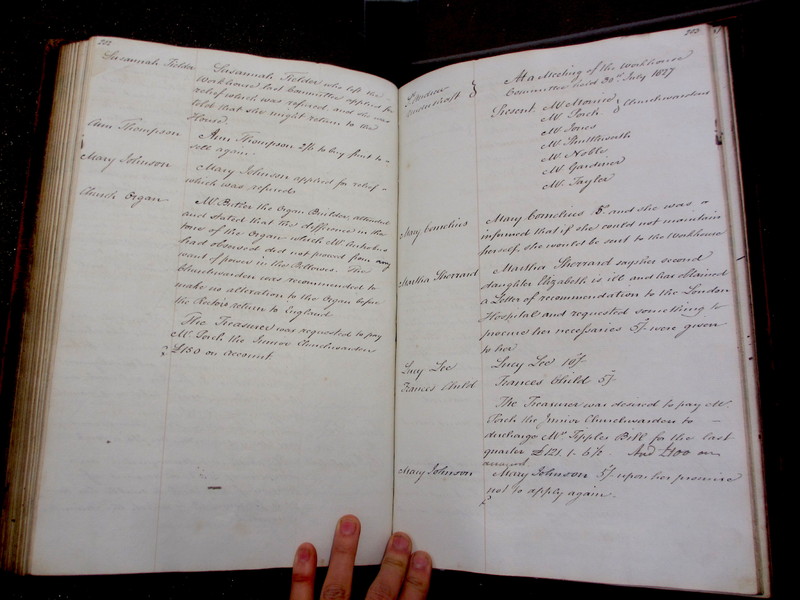 202
Susannah Fielder
Susannah Fielder who left the
Workhouse last Committee applied for
relief which was refused, and she was
told that she might return to the
House.
Ann Thompson
Ann Thompson 2/6 to buy fruit to
sell again.
Mary Johnson
Mary Johnson applied for relief
which was refused
Church Organ
Mr. Butler the Organ Builder, attended
and stated that the difference in the
tone of the Organ which Mr.
had observed did not proceed from any
want of power in the Bellows. The
Churchwarden was recommended to
make no alteration to the Organ before
the Rectors return to England
The Treasurer was requested to pay
Mr. Porch the Junior Churchwarden
£150 on account
203
St. Andrew
Undershaft
At a Meeting of the Workhouse
Committee held 30th July 1827
Present, Mr.
Mr. Porch Churchwardens
Mr. Jones
Mr. Shuttleworth
Mr. Noble
Mr. Gardiner
Mr. Taylor
Mary Cornelius
Mary Cornelius 5/. and she was
informed that if she could not maintain
herself, she would be sent to the Workhouse
Martha Sherrard
Martha Sherrard says her second
daughter Elizabeth is ill and has obtained
a Letter of recommendation to the London
Hospital and requested something to
procure her necessaries 5/- were given
to her
Lucy Lee
Lucy Lee 10/-
Frances Child
Frances Child 5/-
The Treasurer was desired to pay Mr.
Porch the Junior Churchwarden to
discharge Mr. Tipples Bill for the last
quarter £121. 1. 6½ And £100 on
account
Mary Johnson
Mary Johnson 5/- upon her promise
not to apply again.